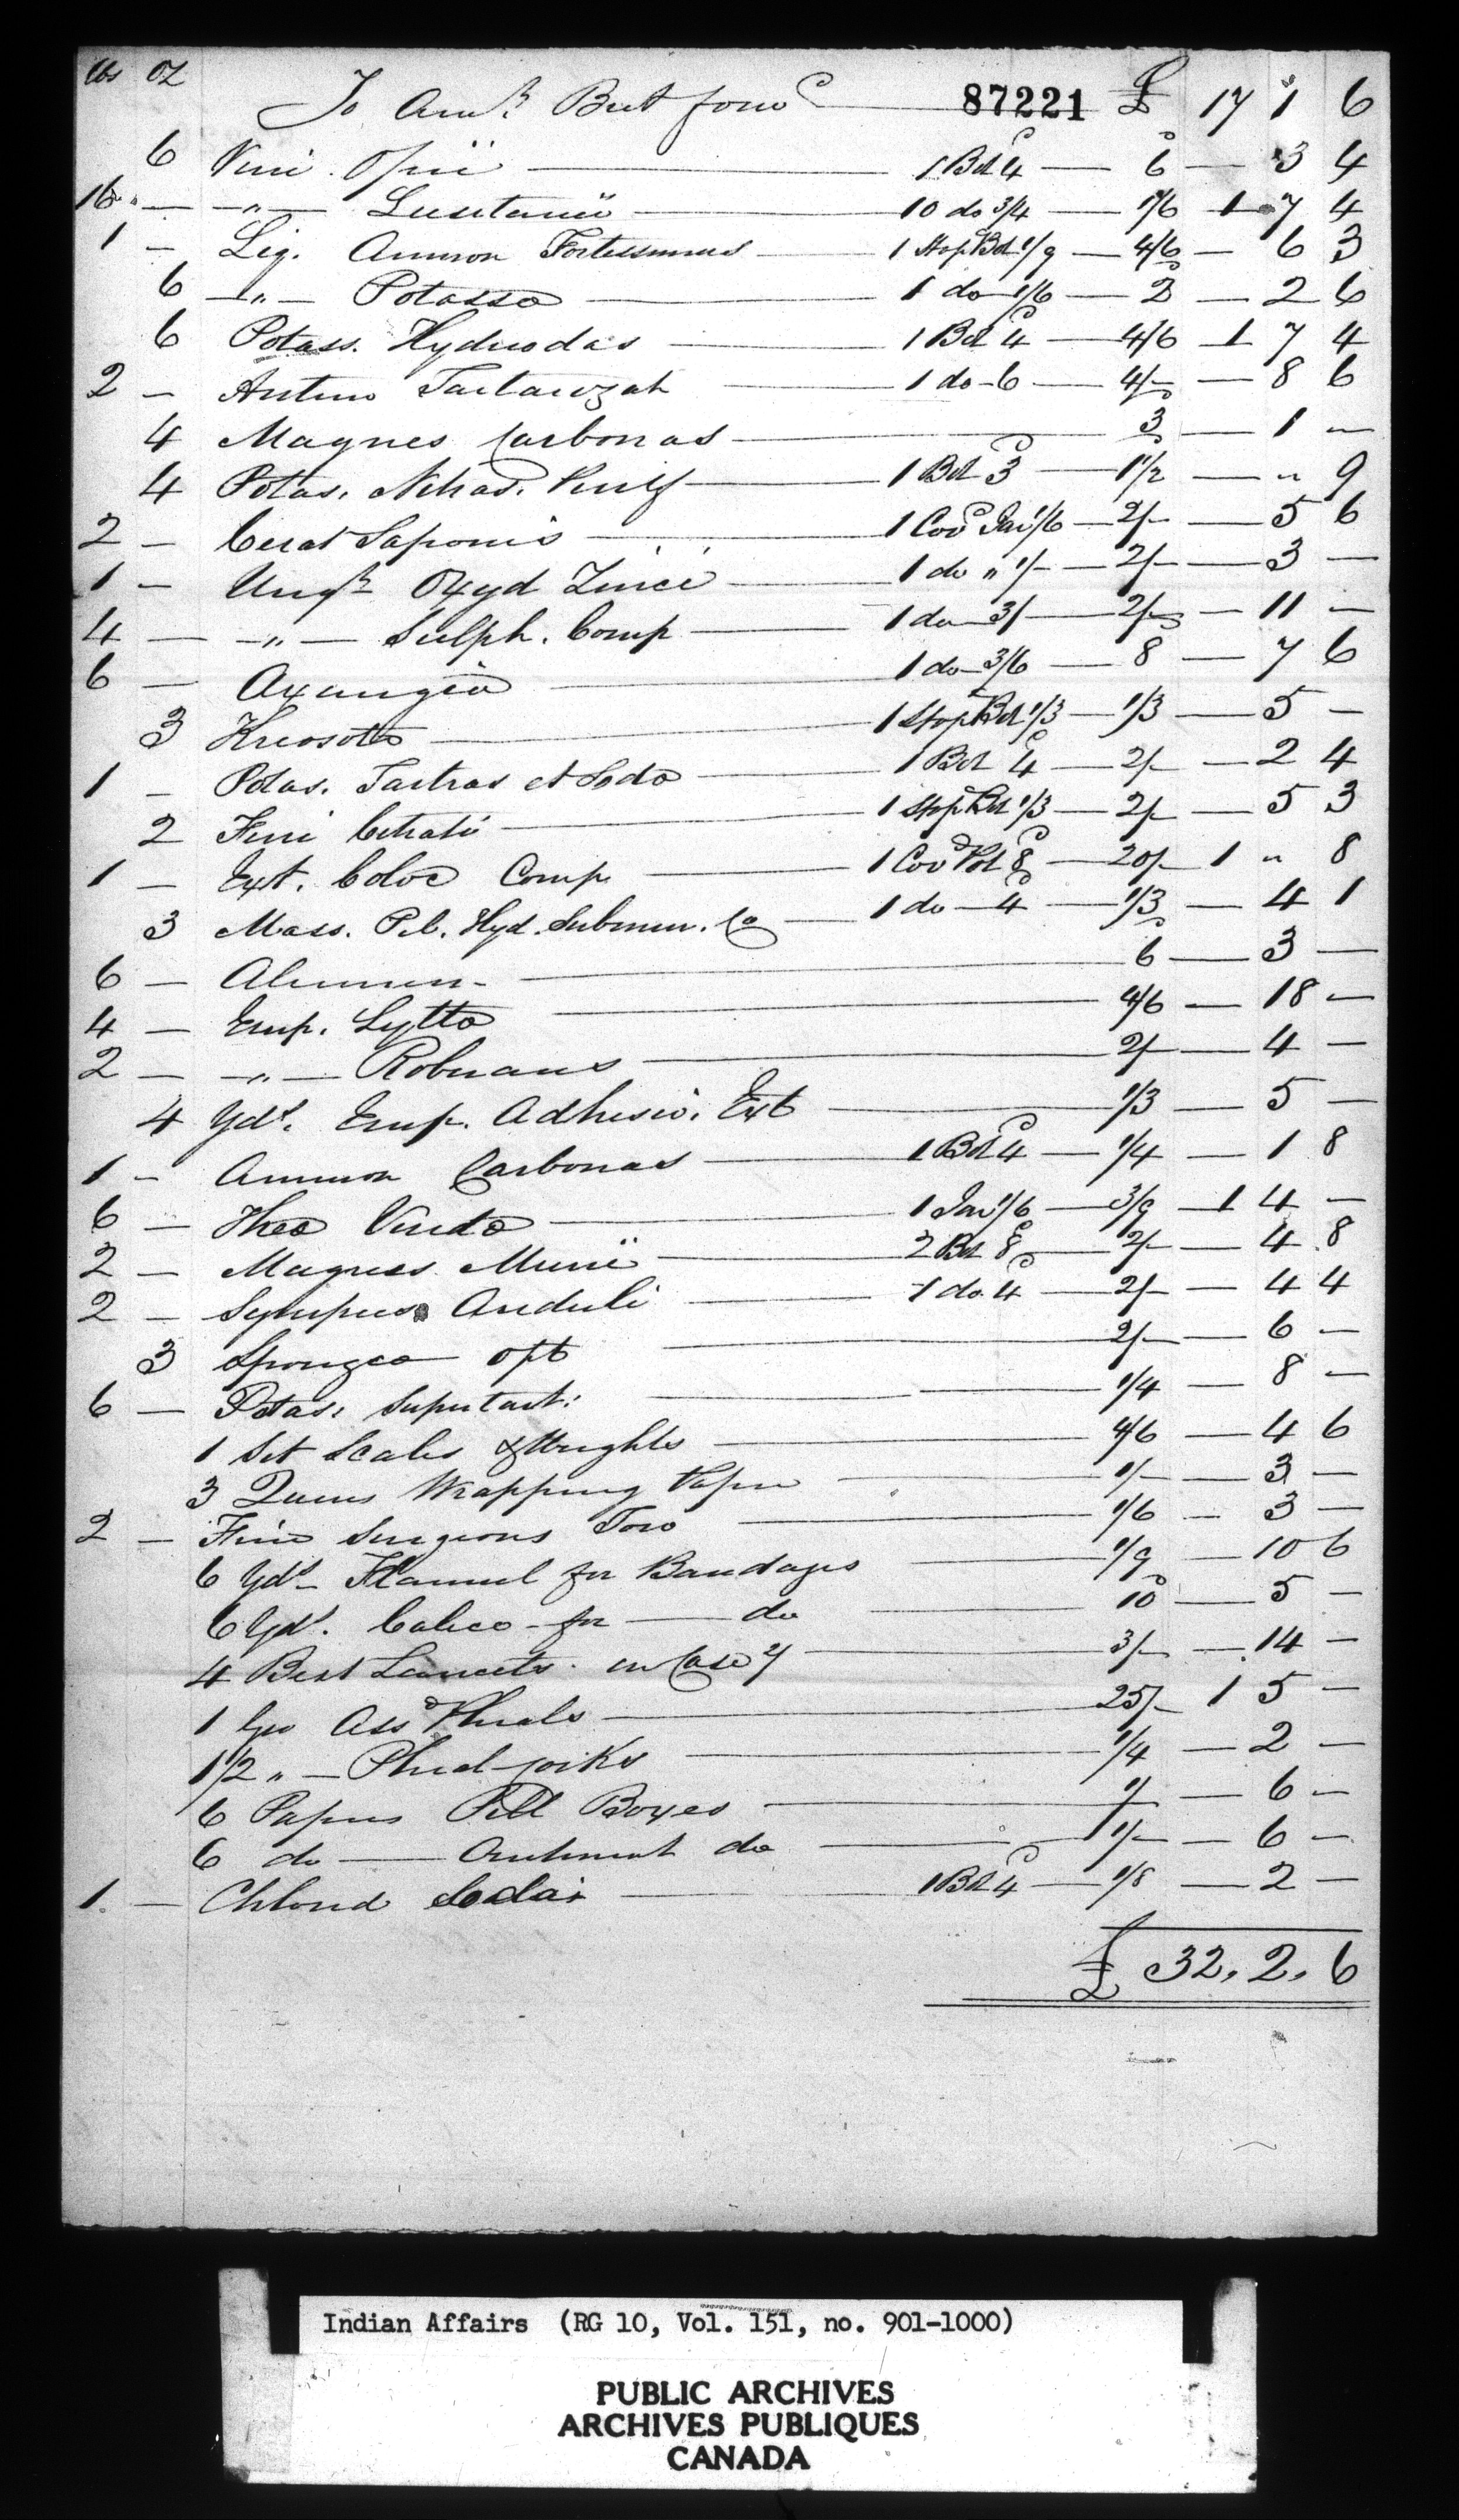 lbs oz
To Amt. Brt forwd 87221 £ 17 1 6
6 Vini Opii — 1 Bot 4 — 6 — 3 4
16 — " — Lusitanii — 10 do 3/4 — 1/6 1 7 4
1 — Liq. Ammon Fortissimus — 1 Stop Bot 1/9 — 4/6 — 6 3
6 — " — Potassa — 1 do 1/6 — 2 — 2 6
6 Potass. Hydriodas — 1 Bot 4 — 4/6 1 7 4
2 — Antim Tartarizat — 1 do 6 — 4/- — 8 6
4 Magnes Carbonas — 3 — 1 —
4 Potas. Nitras. Pulv — 1 Bot 3 — 1 1/2 — " 9
2 — Cerat Saponis — 1 Covd Jar 1/6 — 2/- — 5 6
1 — Ungt Oxyd Zinci — 1 do " 1/- — 2/- — 3 —
4 — " — Sulph. Comp — 1 do 3/ — 2/- — 11 —
6 — Axungia — 1 do 3/6 — 8 — 7 6
3 Kreosoto — 1 Stop Bot 1/3 — 1/3 — 5 —
1 — Potas. Tartras et Soda — 1 Bot 4 — 2/- — 2 4
2 Ferri Citrati — 1 Stop Bot 1/3 — 2/- — 5 3
1 — Ext. Coloc Comp — 1 Covd Pot 8 — 20/- 1 " 8
3 Mass. Pil. Hyd. Submur. Co — 1 do — 4 — 1/3 — 4 1
6 — Alumen — 6 — 3 —
4 — Emp. Lytta — 4/6 — 18 —
2 — " — Roburans — 2/- — 4 —
4 Yds. Emp. Adhesiv. Ext — 1/3 — 5 —
1 — Ammon Carbonas — 1 Bot 4 — 1/4 — 1 8
6 — Thea Virida — 1 Jar 1/6 — 3/9 — 1 4 —
2 — Magnes Murii — 2 Bot 8 — 2/- — 4 8
2 — Syrupus — 1 do 4 — 2/- — 4 4
3 Spongea opt — 2/- — 6 —
6 — Potas. Supertart: — 1/4 — 8 —
1 Set Scales & Weights — 4/6 — 4 6
3 Quires Wrapping Paper — 1/- — 3 —
2 — Fine Surgeons Tow — 1/6 — 3 —
6 Yds — Flannel for Bandages — 1/9 — 10 6
6 Yds. Calico for — do — 10 — 5 —
4 Best Lancets in Case 2/ — 3/- — 14 —
1 Gro Assd Phials — 25/- 1 5 —
1 1/2 " — Phial Corks — 1/4 — 2 —
6 Papers Pill Boxes — 1/ — 6 —
6 do — Ointment do — 1/- — 6 —
1 — Chlorid Sodai — 1 Bot 4 — 1/8 — 2 —
£ 32. 2. 6
Indian Affairs (RG 10, Vol. 151, no. 901-1000)
PUBLIC ARCHIVES
ARCHIVES PUBLIQUES
CANADA